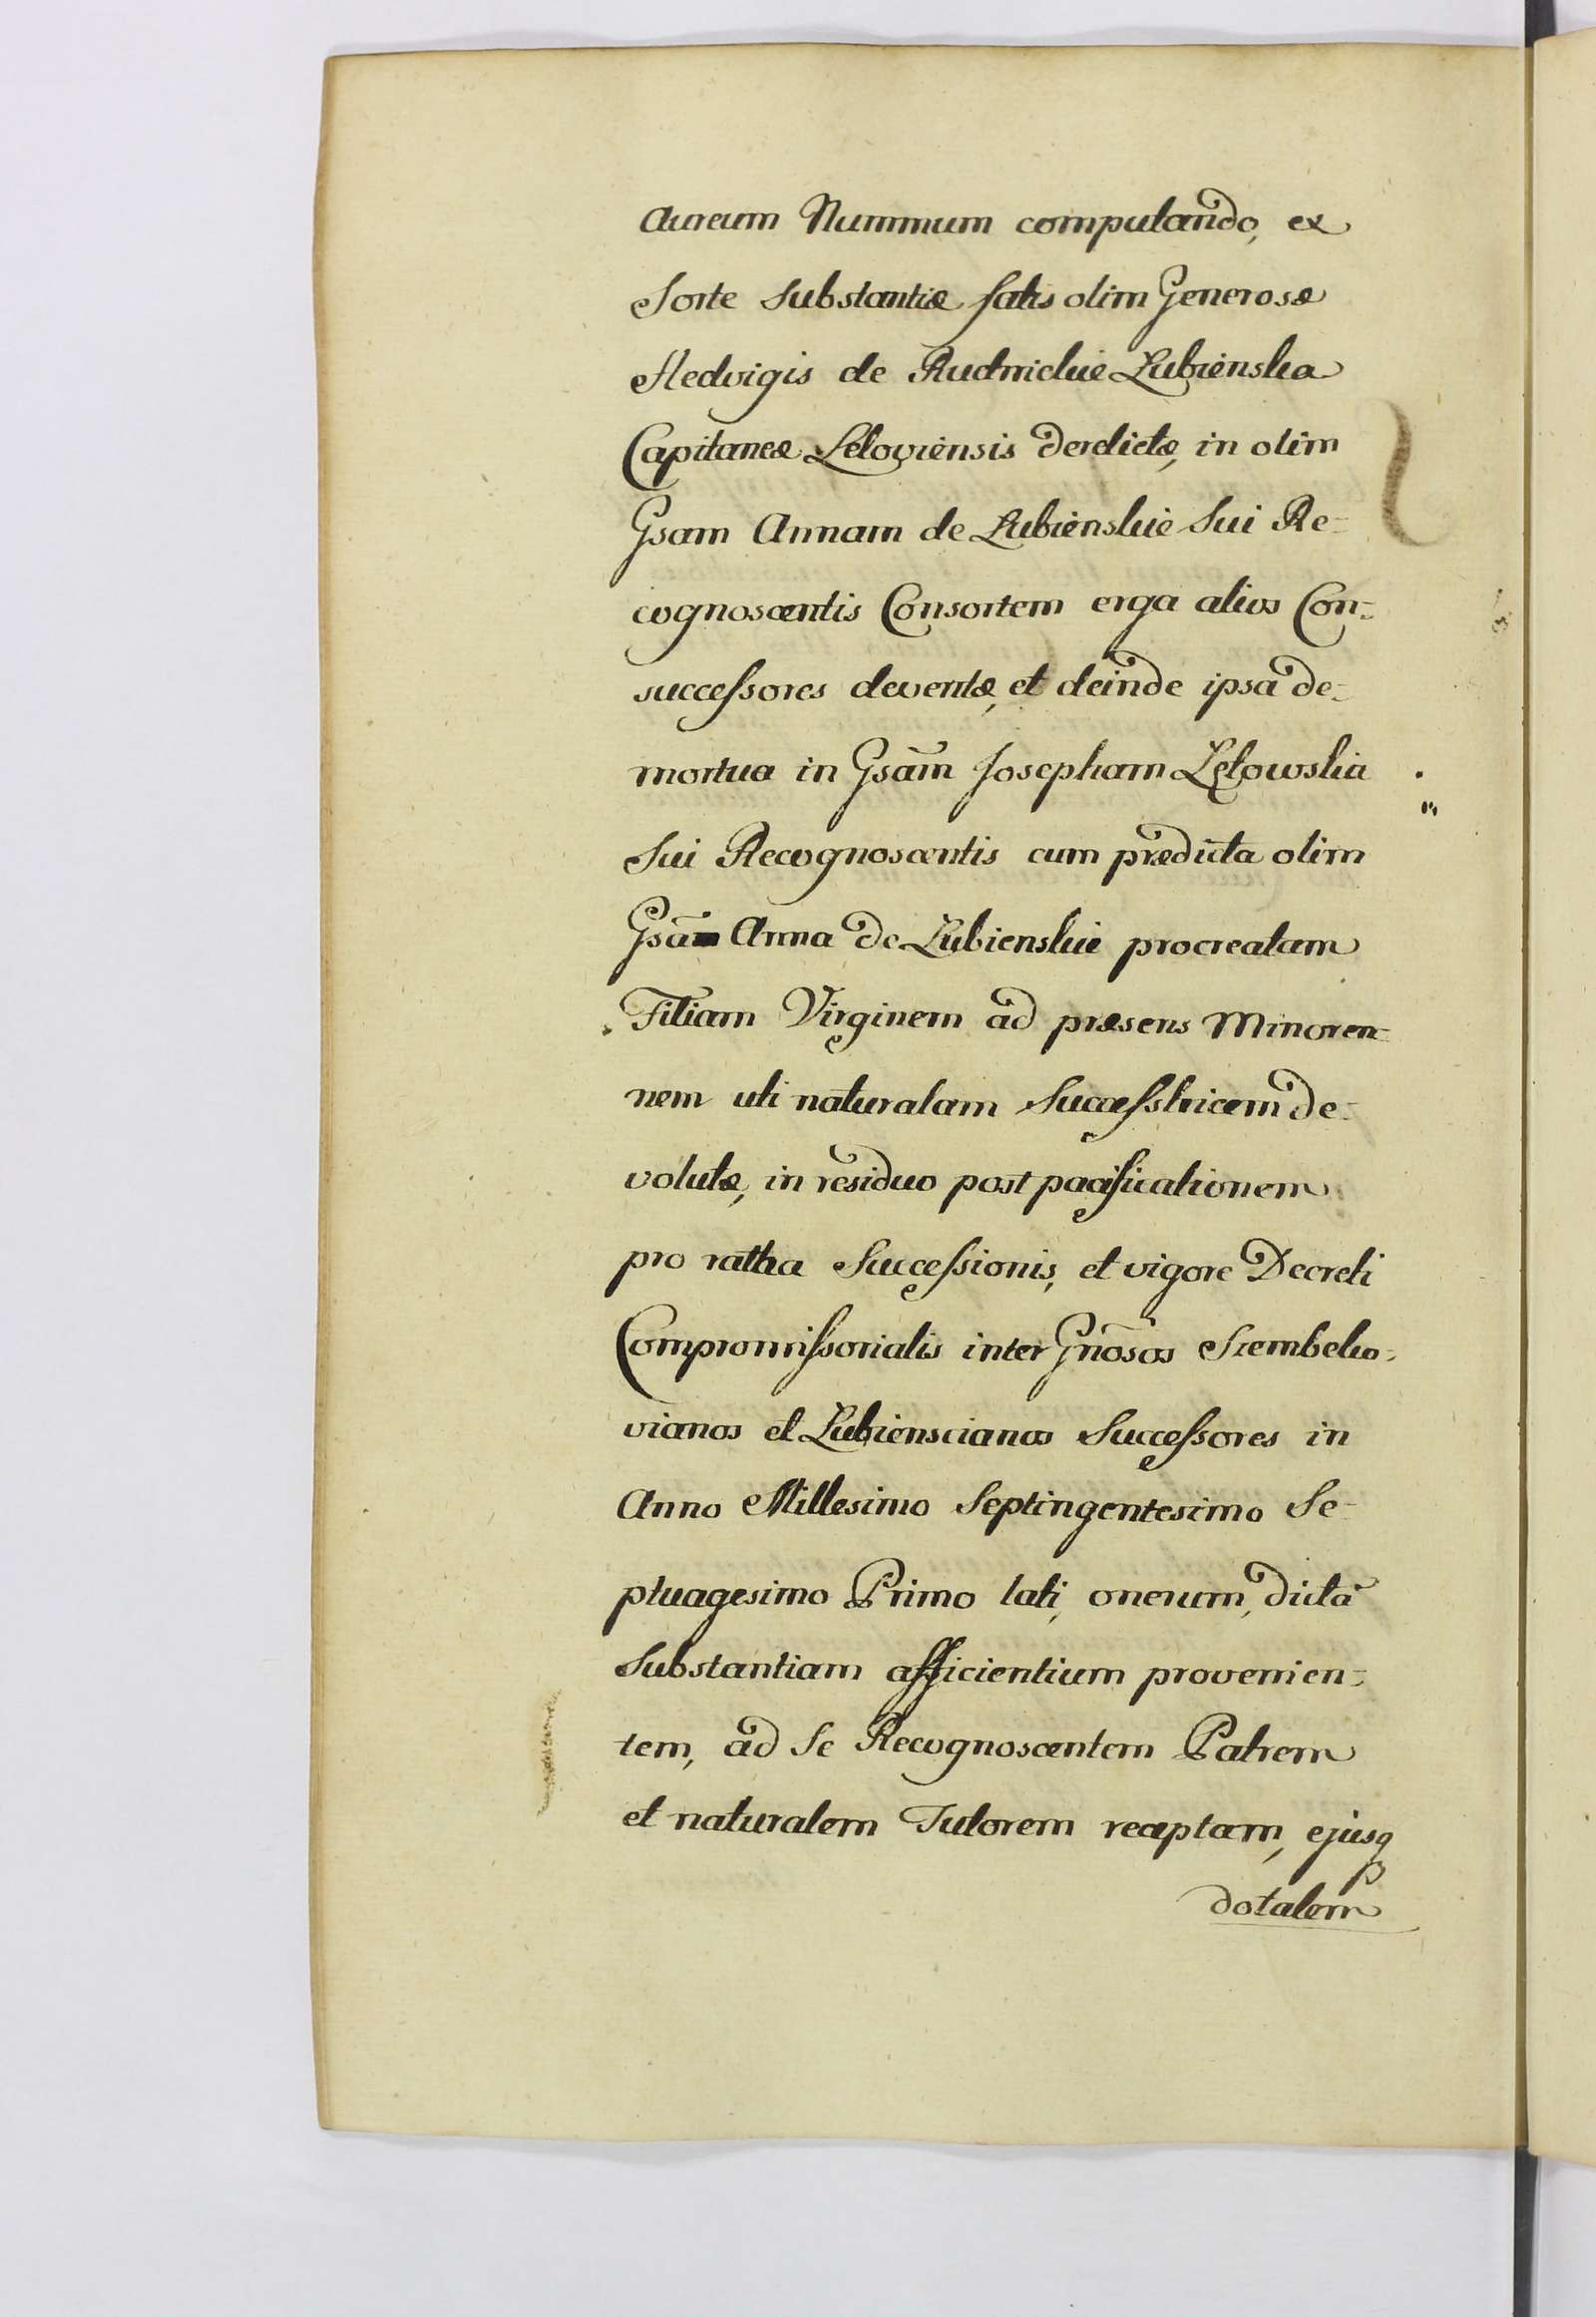 Aureum Nummum computando, ex
Sorte Substantiæ fatis olim Generosæ
Hedvigis de Rudnickie Łubieńska
Capitaneæ Leloviensis derelictæ, in olim
Gsam Annam de Łubieńskie Sui Re-
cognoscentis Consortem erga alios Con-
successores deventæ, et deinde ipsa de-
mortua in Gsam̄ Josepham Zełowska
Sui Recognoscentis cum prædicta olim
Gsa Anna de Łubienskie procreatam
Filiam Virginem ad præsens Minoren-
nem uti naturalam Successtricem de-
volutæ, in residuo post pacificationem
pro ratha Successionis, et vigore Decreti
Compromissorialis inter Gnosos Szembeko-
vianos et Łubienscianos Successores in
Anno Millesimo Septingentesimo Se-
ptuagesimo Primo lati, onerum, dictā
Substantiam afficientium provenien-
tem, ad Se Recognoscentem Patrem
et naturalem Tutorem receptam, ejusq
dotalem